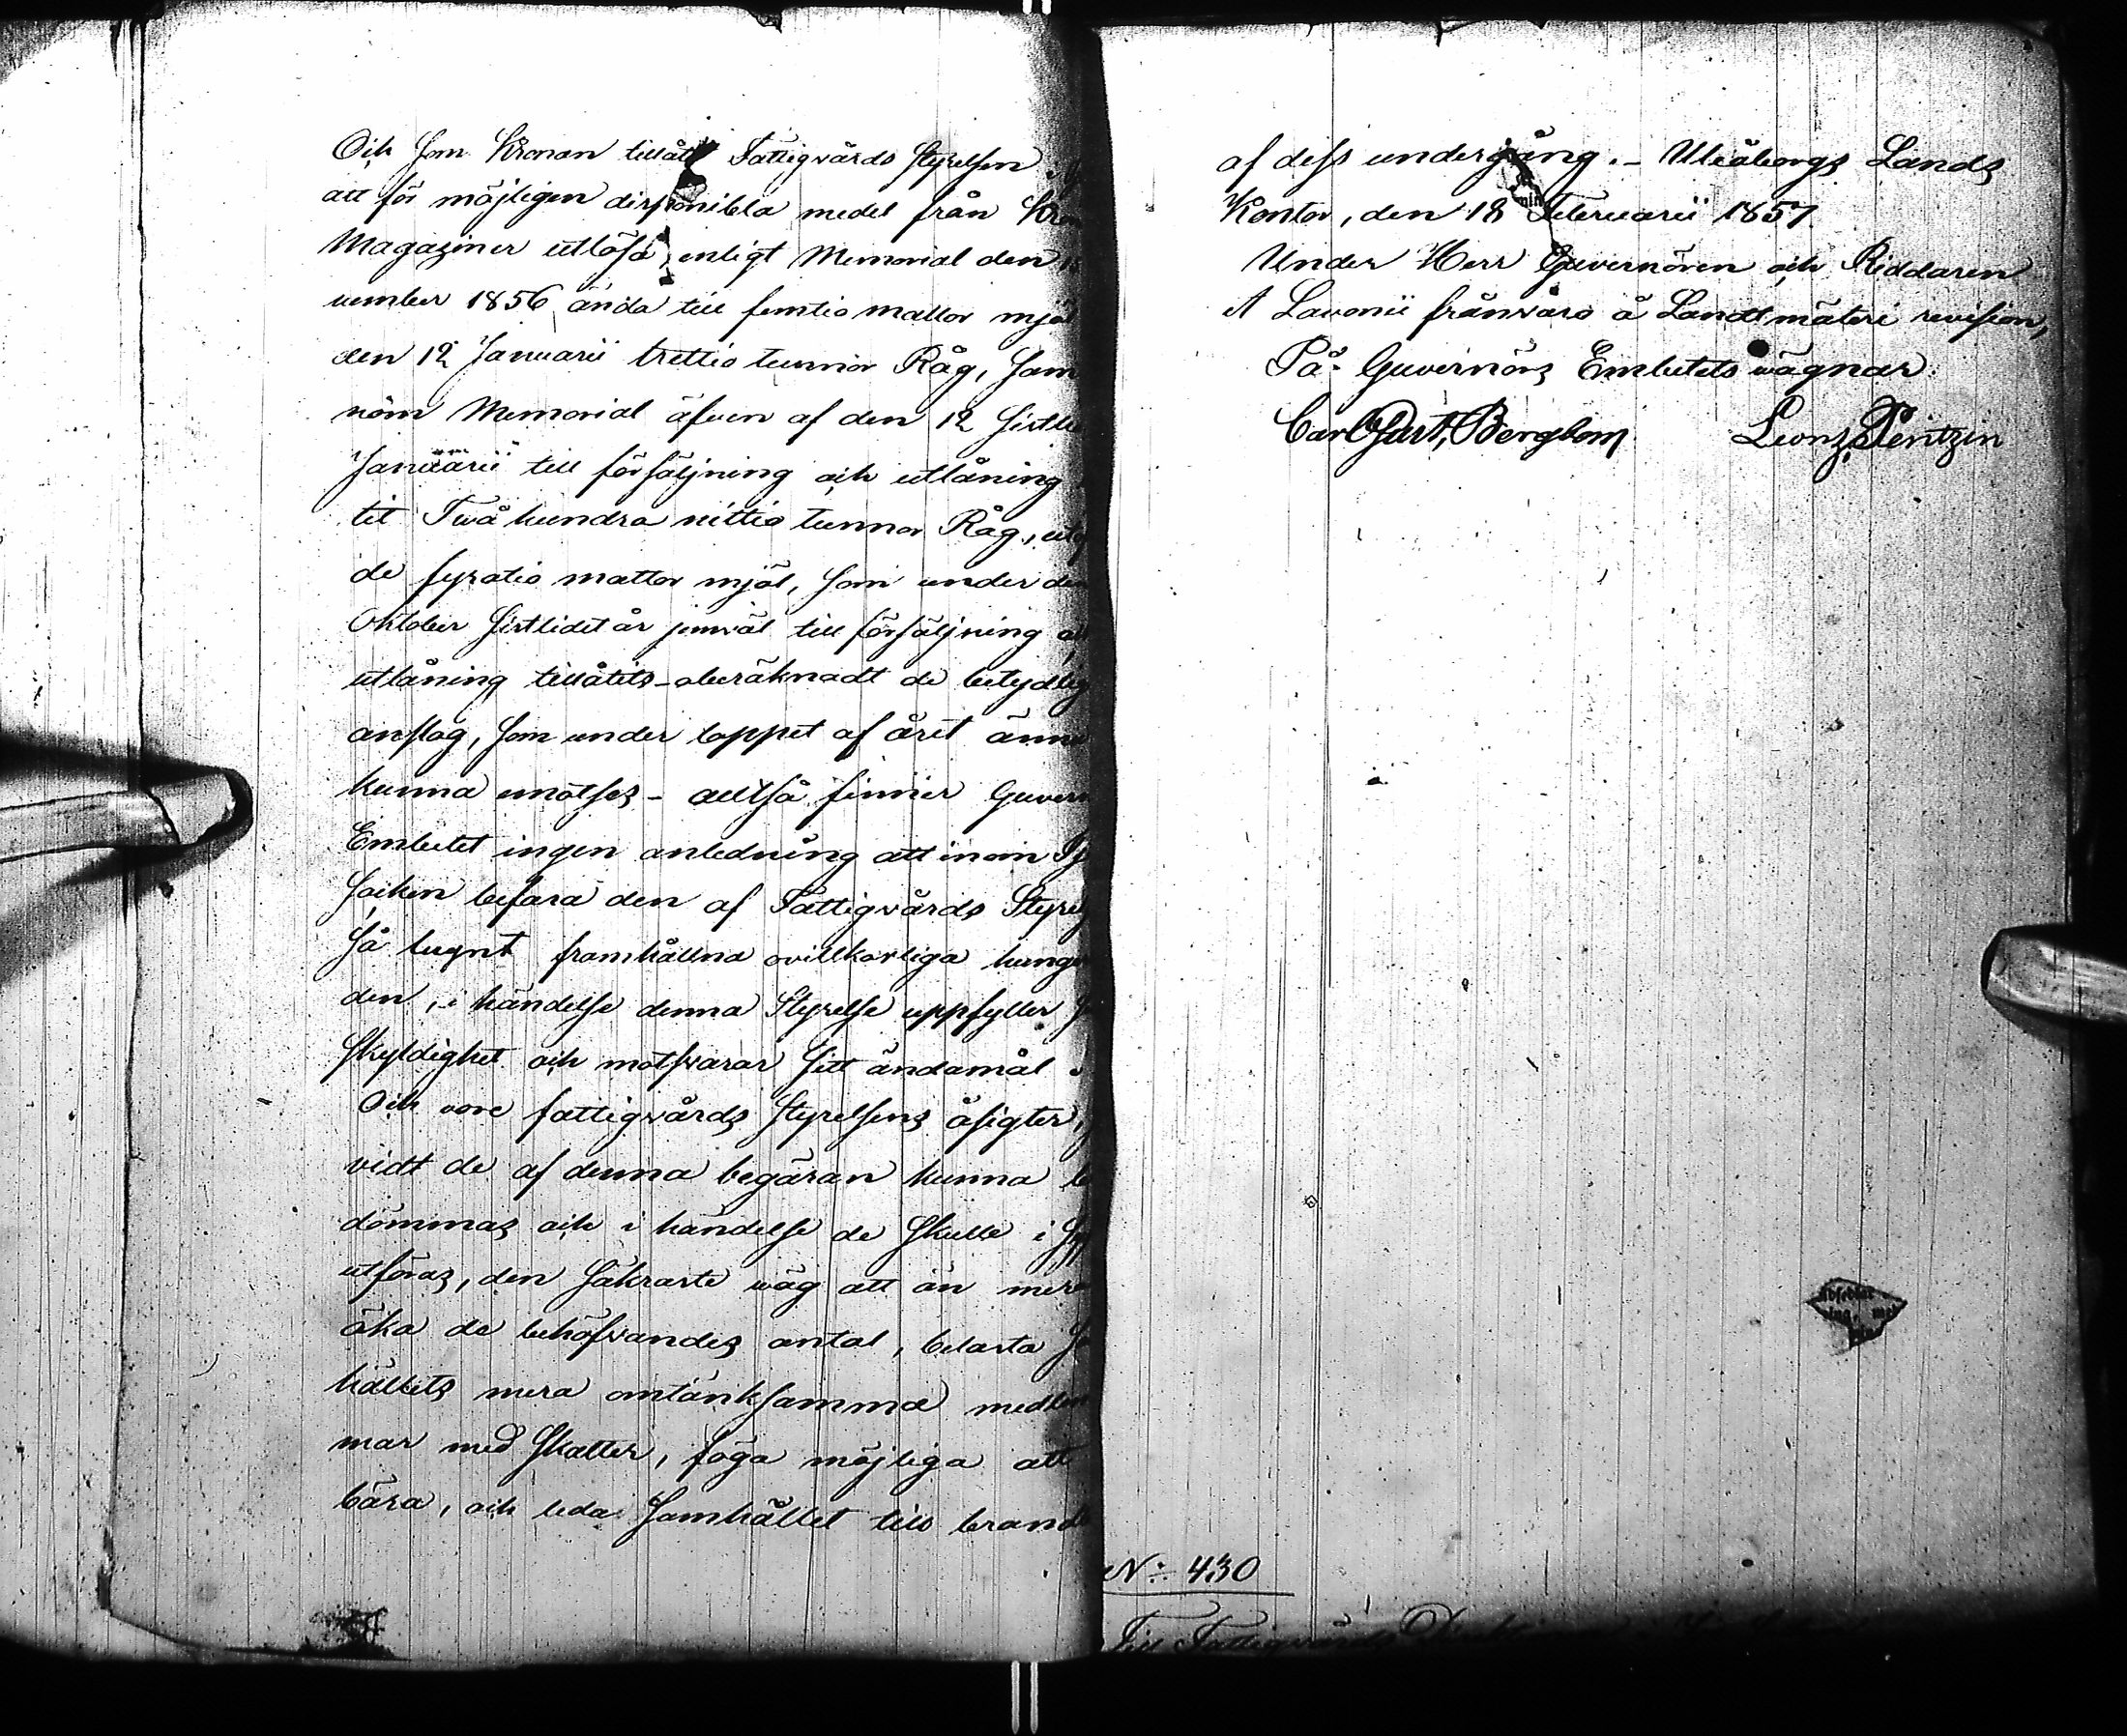 Och som Kronan tillåtit Fattigvårds Styrelsen
att för möjligen disponibla medel från Kro
Magaziner utlösa, enligt Memorial den
vember 1856 ända till femtio mattor mjöl
den 12 Januarii trettio tunnor Råg, sam
nom Memorial äfven af den 12 sistl
Januarii till försäljning och utlåning
tit Twå hundra nittio tunnor Råg, utg
de fyratio mattor mjöl, som under den
Oktober sistlidet år jemväl till försäljning och
utlåning tillåtits - oberäknadt de betydlig
anslag, som under loppet af året ännu
kunna emotses - alltså finner Guvern
Embetet ingen anledning att inom
Socken befara den af Fattigvårds Styrel
så lugnt framhållna ovillkorliga hunge
den, i händelse denna Styrelse uppfyller
skyldighet och motsvarar sitt ändamål.
Och vore fattigvårds Styrelsens åsigter,
vidt de af denna begäran kunna be
dömmas och i händelse de skulle i
utföras, den säkraste wäg att än mera
öka de behöfvandes antal, belasta
hällets mera omtänksamma medlem
mar med skatter, föga möjliga att
bära, och leda Samhället till brand
af dess undergång. - Uleåborgs Lands
Kontor, den 18 Februarii 1857.
Under Herr Guvernören och Riddaren
A Lavonii frånvaro å Landtmäteri revision,
På Guvernörs Embetets wägnar:
Carl Gust. Bergbom Leonz. Pentzin
No 430
Till Fattigvårds